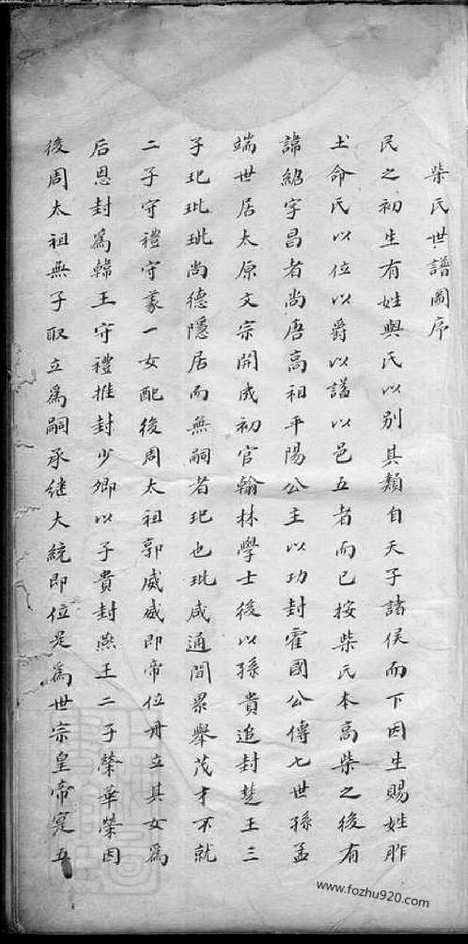 柴氏世譜圖序
民之初生有姓與氏以別其類自天子諸侯而下因生賜姓胙
土命氏以位以爵以謚以邑五者而已按柴氏本高柴之後有
諱紹字昌者尚唐高祖平陽公主以功封霍國公傳七世孫孟
端世居太原文宗開成初官翰林學士後以孫貴追封楚王三
子玘玭玭尚德隱居而無嗣者玘也玭咸通間累舉茂才不就
二子守禮守義一女配後周太祖郭威威即帝位冊立其女為
后恩封為韓王守禮推封少卿以子貴封燕王二子榮華榮因
後周太祖無子取立為嗣承繼大統即位是為世宗皇帝寔五
https://www.fozhu920.com